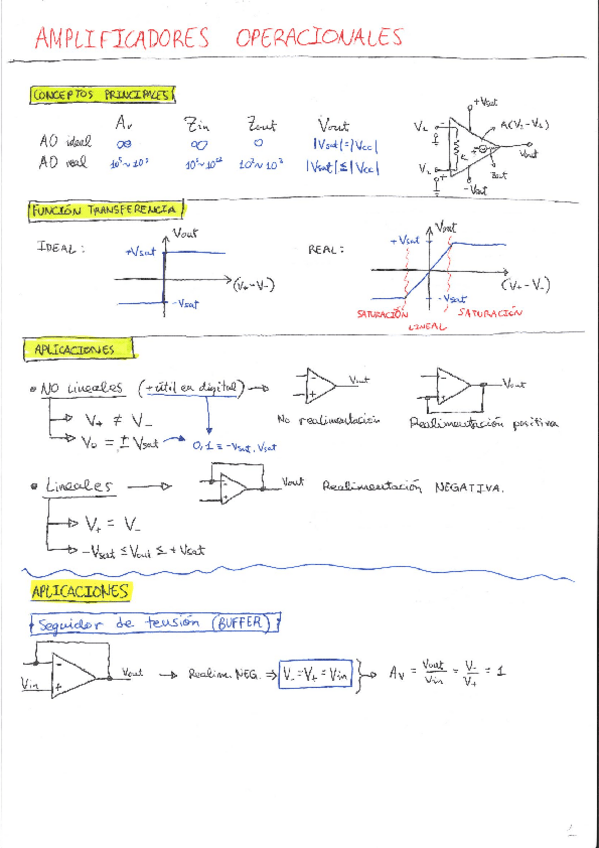 AMPLIFICADORES OPERACIONALES
CONCEPTOS PRINCIPALES
Av Zin Zout Vout
AO ideal ∞ ∞ 0 |Vsat|=|Vcc|
AO real |Vsat|≤|Vcc|
+Vsat
A(V₁-V₂)
Vout
Zout
-Vsat
FUNCIÓN TRANSFERENCIA
IDEAL:
Vout
+Vsat
(V+-V-)
-Vsat
REAL:
Vout
+Vsat
(V+-V-)
-Vsat
SATURACIÓN
LINEAL
SATURACIÓN
APLICACIONES
• NO Lineales (+útil en digital)
V+ ≠ V-
Vo = ± Vsat
0,1 ≡ -Vsat, Vsat
Vout
No realimentación
Vout
Realimentación positiva
• Lineales
Vout
Realimentación NEGATIVA.
V+ = V-
-Vsat ≤ Vout ≤ +Vsat
APLICACIONES
Seguidor de tensión (BUFFER)
Vin
Vout
Realim. NEG. ⇒ V-=V+=Vin
Av = Vout/Vin = V-/V+ = 1